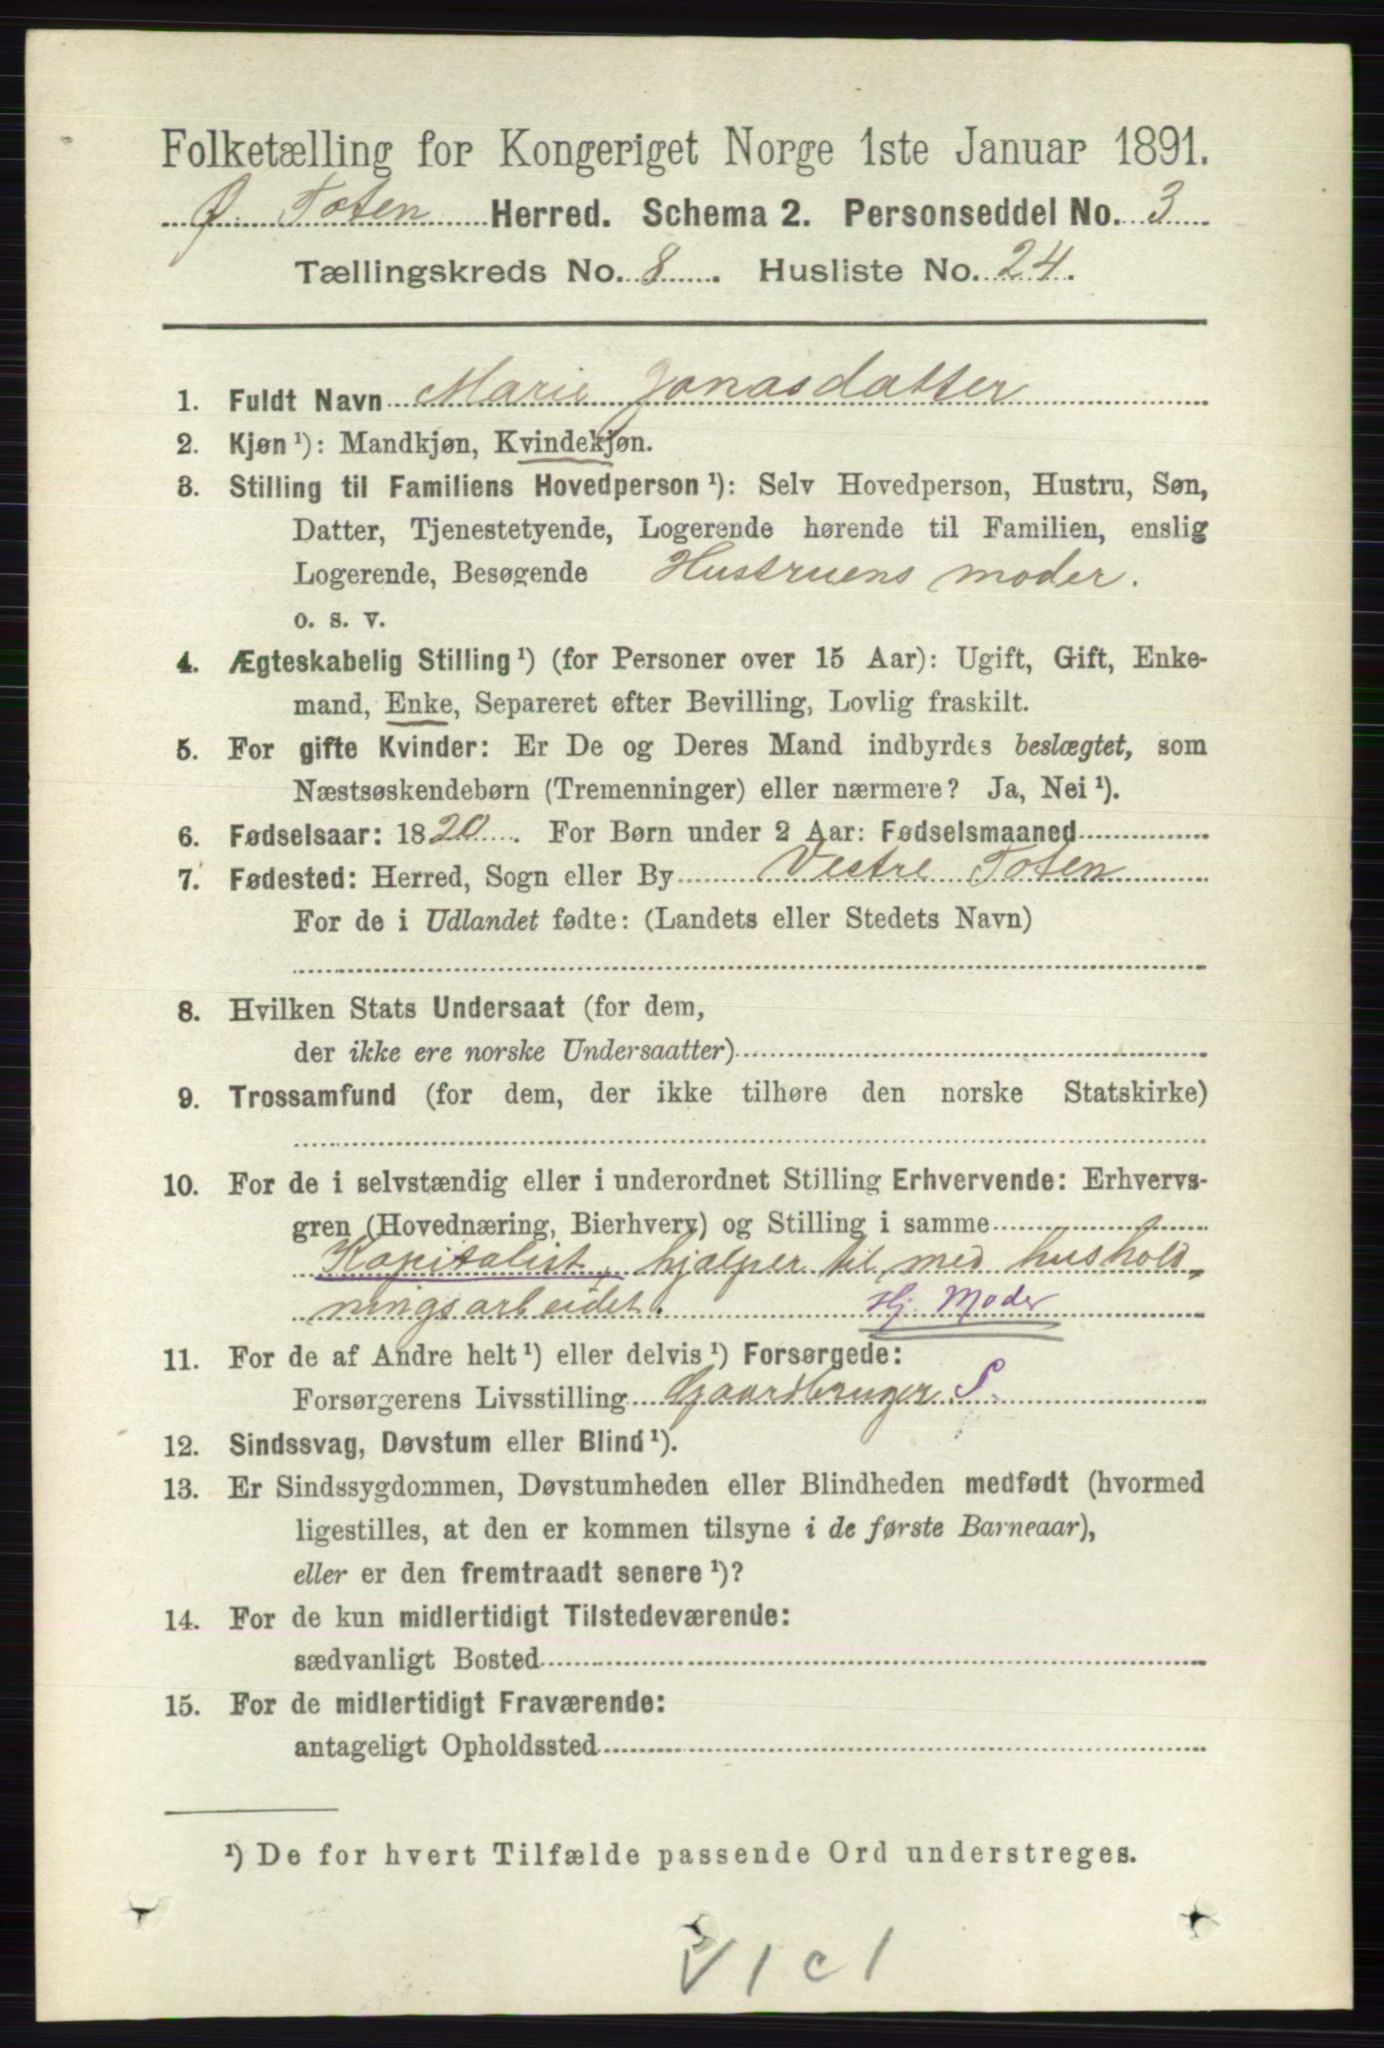 Folketælling for Kongeriget Norge 1ste Januar 1891.
Ø. Toten Herred. Schema 2. Personseddel No. 3
Tællingskreds No. 8. Husliste No. 24.
1. Fuldt Navn Marie Jonasdatter
2. Kjøn ¹): Mandkjøn, Kvindekjøn.
3. Stilling til Familiens Hovedperson ¹): Selv Hovedperson, Hustru, Søn,
Datter, Tjenestetyende, Logerende hørende til Familien, enslig
Logerende, Besøgende Hustruens moder.
o. s. v.
4. Ægteskabelig Stilling ¹) (for Personer over 15 Aar): Ugift, Gift, Enke-
mand, Enke, Separeret efter Bevilling, Lovlig fraskilt.
5. For gifte Kvinder: Er De og Deres Mand indbyrdes beslægtet, som
Næstsøskendebørn (Tremenninger) eller nærmere? Ja, Nei ¹).
6. Fødselsaar: 1820. For Børn under 2 Aar: Fødselsmaaned
7. Fødested: Herred, Sogn eller By Vestre Toten
For de i Udlandet fødte: (Landets eller Stedets Navn)
8. Hvilken Stats Undersaat (for dem,
der ikke ere norske Undersaatter)
9. Trossamfund (for dem, der ikke tilhøre den norske Statskirke)
10. For de i selvstændig eller i underordnet Stilling Erhvervende: Erhvervs-
gren (Hovednæring, Bierhverv) og Stilling i samme
Kapitalist, hjælper til med hushold-
ningsarbeidet. Hj. Moder
11. For de af Andre helt ¹) eller delvis ¹) Forsørgede:
Forsørgerens Livsstilling Gaardbruger S.
12. Sindssvag, Døvstum eller Blind ¹).
13. Er Sindssygdommen, Døvstumheden eller Blindheden medfødt (hvormed
ligestilles, at den er kommen tilsyne i de første Barneaar),
eller er den fremtraadt senere ¹)?
14. For de kun midlertidigt Tilstedeværende:
sædvanligt Bosted
15. For de midlertidigt Fraværende:
antageligt Opholdssted
¹) De for hvert Tilfælde passende Ord understreges.
V1c1